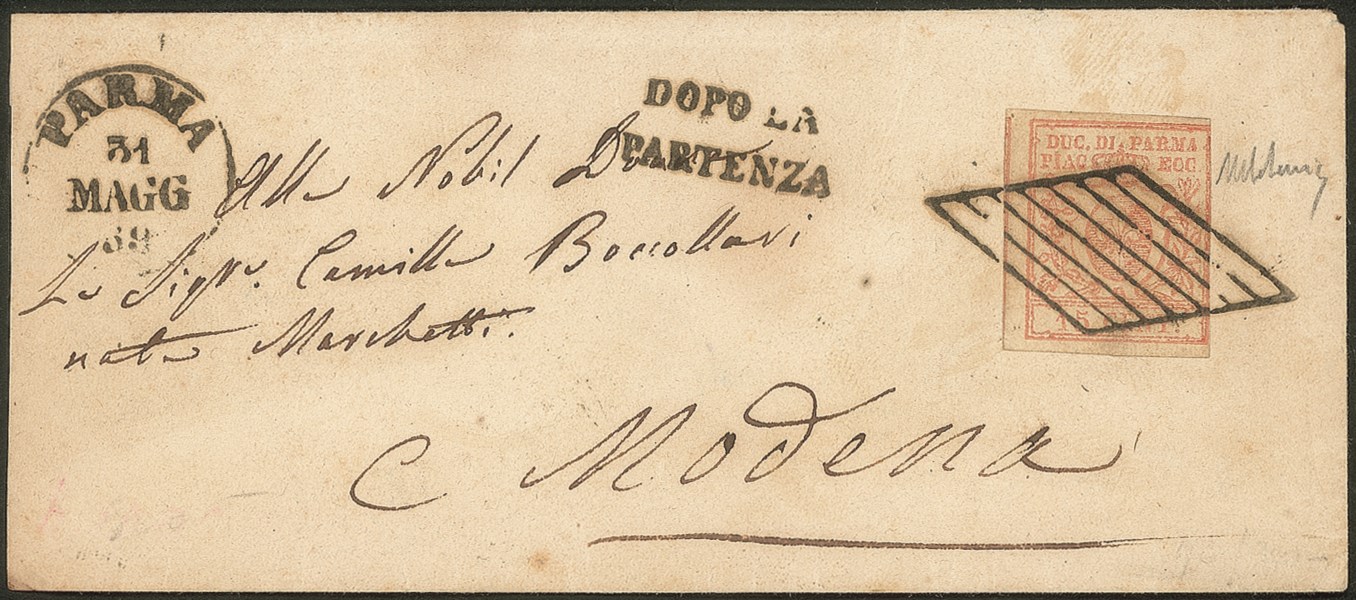 PARMA
31
MAGG
59
DOPO LA
PARTENZA
DUC. DI. PARMA
PIAC. ECC.
15
Alla Nobil Donna
La Sigra. Camilla Boccollari
nata Marchetti.
Modena